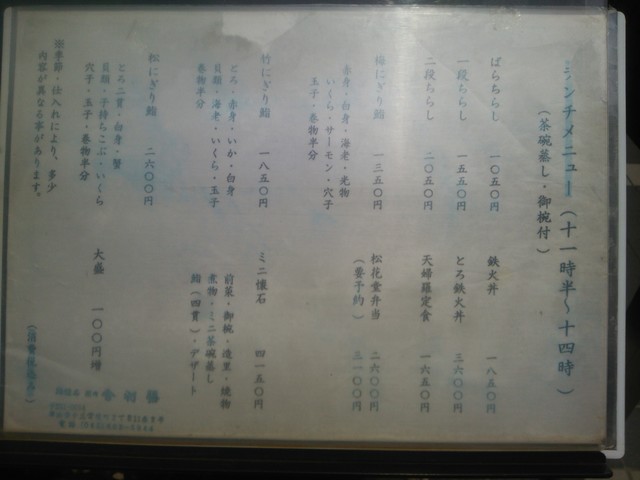 ランチメニュー（十一時半～十四時）
（茶碗蒸し・御椀付）
ばらちらし 一〇五〇円
一段ちらし 一五五〇円
二段ちらし 二〇五〇円
梅にぎり鮨 一三五〇円
赤身・白身・海老・光物
いくら・サーモン・穴子
玉子・巻物半分
竹にぎり鮨 一八五〇円
とろ・赤身・いか・白身
貝類・海老・いくら・玉子
巻物半分
松にぎり鮨 二六〇〇円
とろ二貫・白身・蟹
貝類・子持ちこぶ・いくら
穴子・玉子・巻物半分
※季節・仕入れにより、多少
内容が異なる事があります。
鉄火丼 一八五〇円
とろ鉄火丼 三六〇〇円
天婦羅定食 一六五〇円
松花堂弁当 二六〇〇円
（要予約） 三一〇〇円
ミニ懐石 四一五〇円
前菜・御椀・造里・焼物
煮物・ミニ茶碗蒸し
鮨（四貫）・デザート
大盛 一〇〇円増